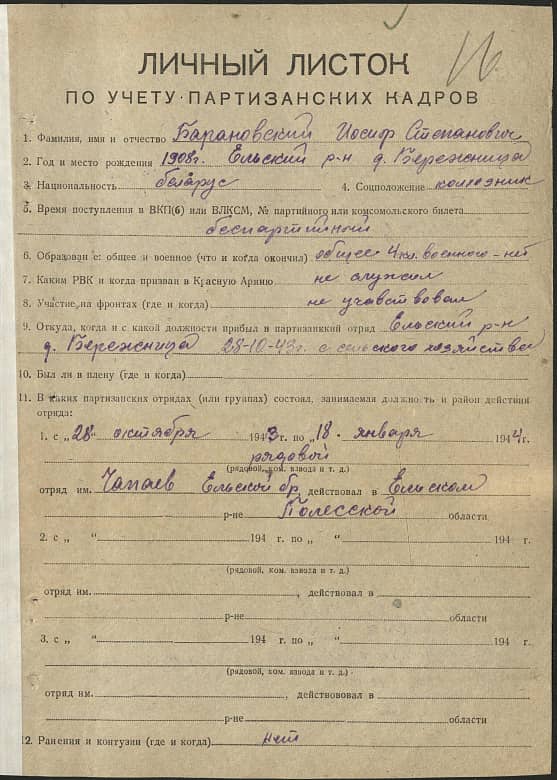 16
ЛИЧНЫЙ ЛИСТОК
ПО УЧЕТУ ПАРТИЗАНСКИХ КАДРОВ
1. Фамилия, имя и отчество Барановский Иосиф Степанович
2. Год и место рождения 1908г. Ельский р-н д. Бережница
3. Национальность беларус 4. Соцположение колхозник
5. Время поступления в ВКП(б) или ВЛКСМ, № партийного или комсомольского билета
беспартийной
6. Образован е: общее и военное (что и когда окончил) общее 4 кл. военного - нет
7. Каким РВК и когда призван в Красную Армию не служил
8. Участие на фронтах (где и когда) не учавствовал
9. Откуда, когда и с какой должности прибыл в партизанский отряд Ельский р-н
д. Бережница 28-10-43г. с сельского хозяйства
10. Был ли в плену (где и когда)
11. В каких партизанских отрядах (или группах) состоял, занимаемая должность и район действия
отряда:
1. с „28" октября 1943г. по „18" января 1944г.
рядовой
(рядовой, ком. взвода и т. д.)
отряд им. Чапаев Ельской бр действовал в Ельском
р-не Полесской области
2. с „ " 194 г. по „ " 194 г.
(рядовой, ком. взвода и т. д.)
отряд им. , действовал в
р-не области
3. с „ " 194 г. по „ " 194 г.
(рядовой, ком. взвода и т. д.)
отряд им. , действововал в
р-не области
12. Ранения и контузии (где и когда) нет